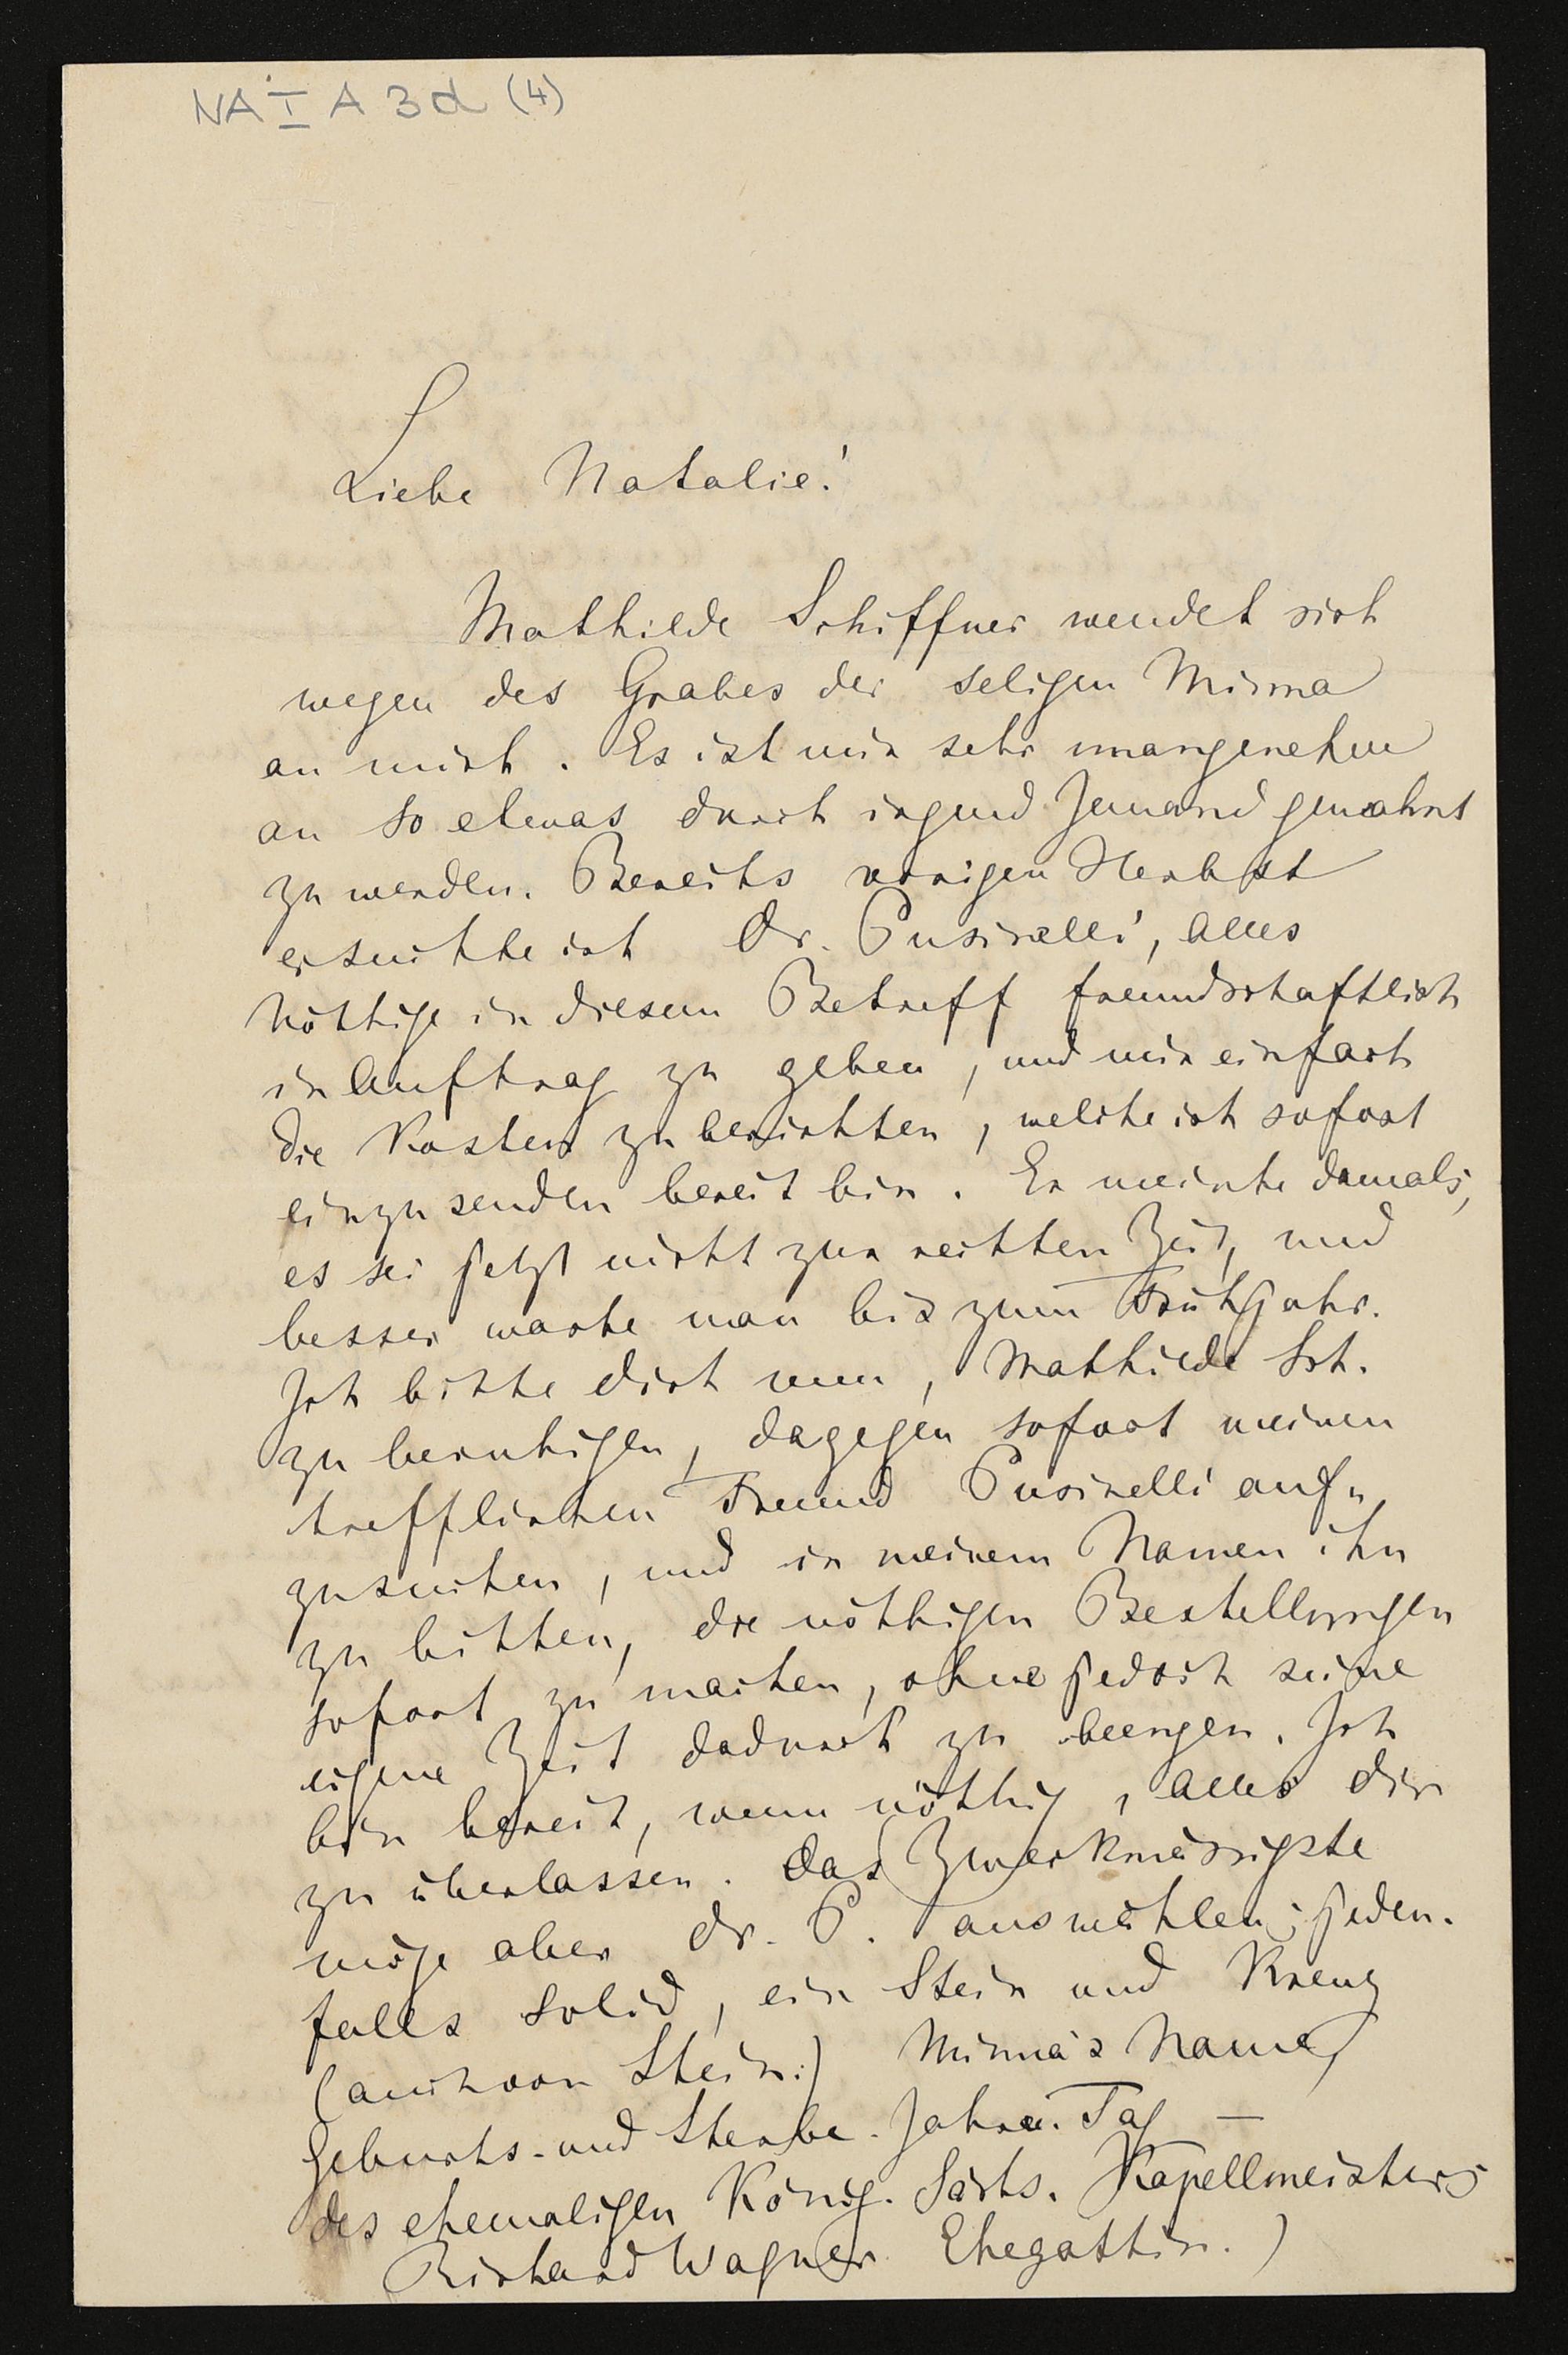 NA I A 3 d (4)
Liebe Natalie!
Mathilde Schiffner wendet sich
wegen des Grabes der seligen Minna
an mich. Es ist mir sehr unangenehm
an so etwas durch irgend Jemand gemahnt
zu werden. Bereits vorigen Herbst
ersuchte ich Dr. Pusinelli, alles
Nöthige in diesem Betreff freundschaftlich
in Auftrag zu geben, und mir einfach
die Kosten zu berichten, welche ich sofort
einzusenden bereit bin. Er meinte damals,
es sei jetzt nicht zur rechten Zeit, und
besser warte man bis zum Frühjahr.
Ich bitte dich nun, Mathilde Sch.
zu beruhigen, dagegen sofort meinen
trefflichen Freund Pusinelli auf-
zusuchen, und in meinem Namen ihn
zu bitten, die nöthigen Bestellungen
sofort zu machen, ohne jedoch seine
eigene Zeit dadurch zu beengen. Ich
bin bereit, wenn nöthig, alles dir
zu überlassen. Das Zweckmässigste
möge aber Dr. P. auswählen; jeden-
falls solid, ein Stein und Kreuz
(auch von Stein:) Minna's Name,
Geburts- und Sterbe-Jahr u. Tag —
des ehemaligen König. Sächs. Kapellmeisters
Richard Wagner Ehegattin.)